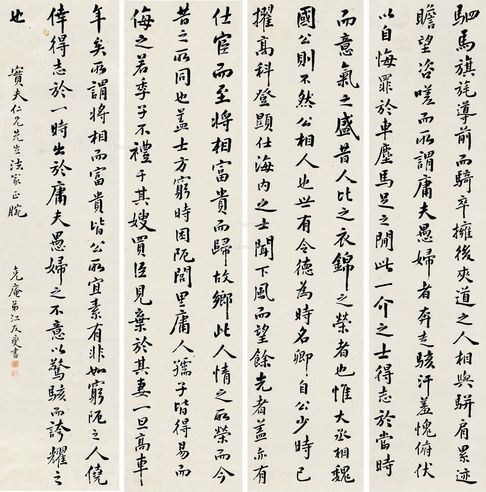 駟馬旗旄導前而騎卒擁後夾道之人相與駢肩累迹
瞻望咨嗟而所謂庸夫愚婦者奔走駭汗羞愧俯伏
以自悔罪於車塵馬足之間此一介之士得志於當時
而意氣之盛昔人比之衣錦之榮者也惟大丞相魏
國公則不然公相人也世有令德為時名卿自公少時已
擢高科登顯仕海內之士聞下風而望餘光者蓋亦有
仕宦而至將相富貴而歸故鄉此人情之所榮而今
昔之所同也蓋士方窮時困阨閭里庸人孺子皆得易而
侮之若季子不禮于其嫂買臣見棄於其妻一旦高車
年矣所謂將相而富貴皆公所宜素有非如窮阨之人僥
倖得志於一時出於庸夫愚婦之不意以驚駭而誇耀之
也
寶夫仁兄先生法家正腕
克庵弟江友燮書